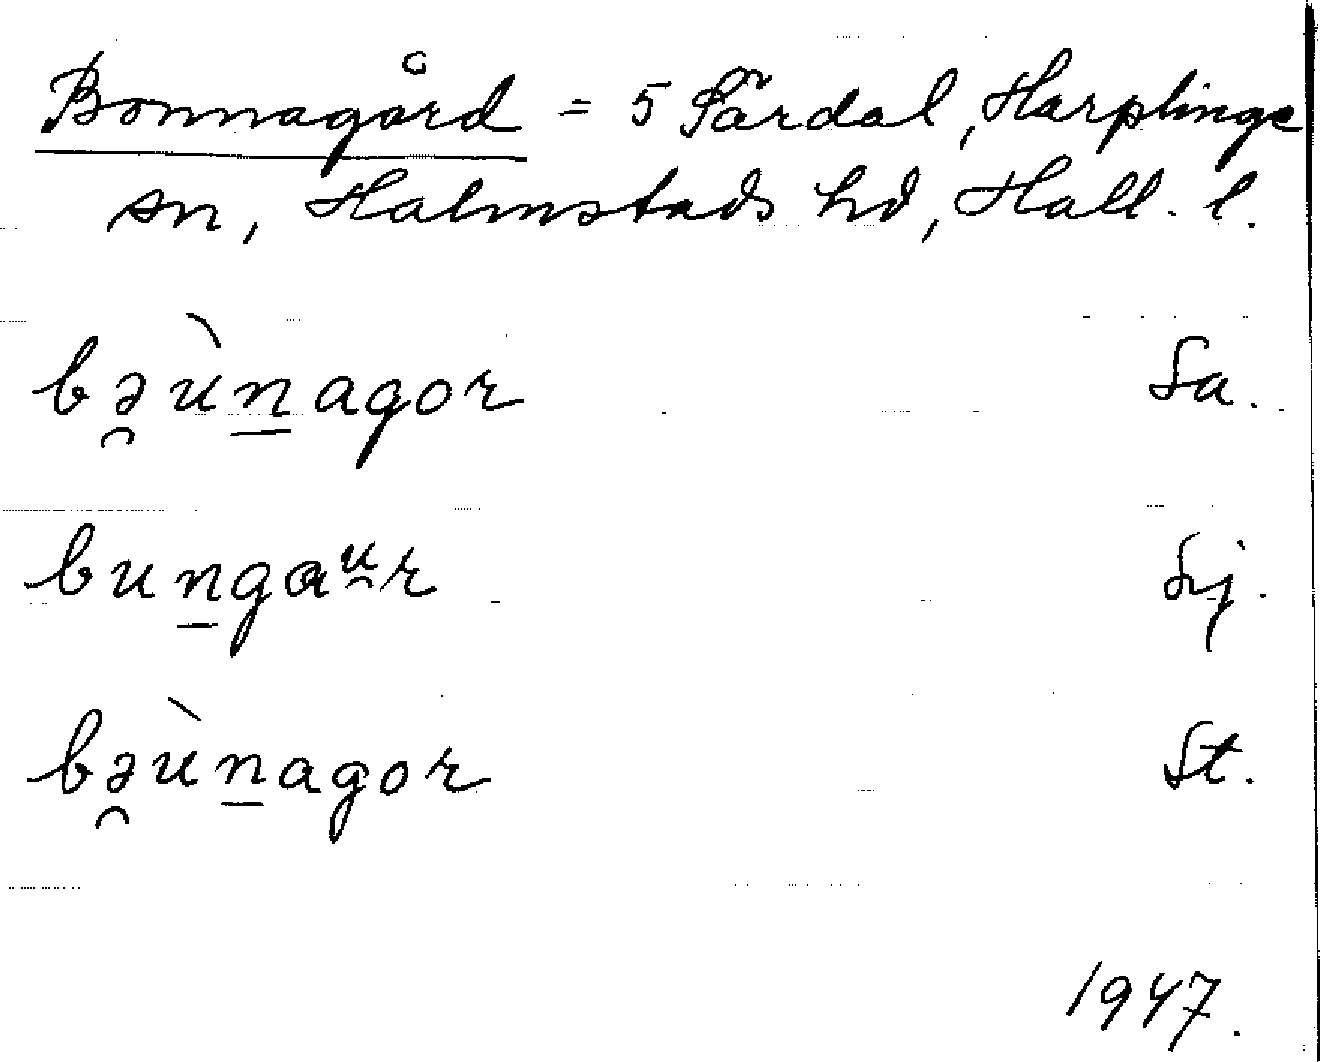 Bonnagård = 5 Särdal, Harplinge
sn, Halmstads hd, Hall. l.
bə̯ùn̲agor Sa.
bun̲gaᵘ̯r Sj.
bə̯ùn̲agor St.
1947.